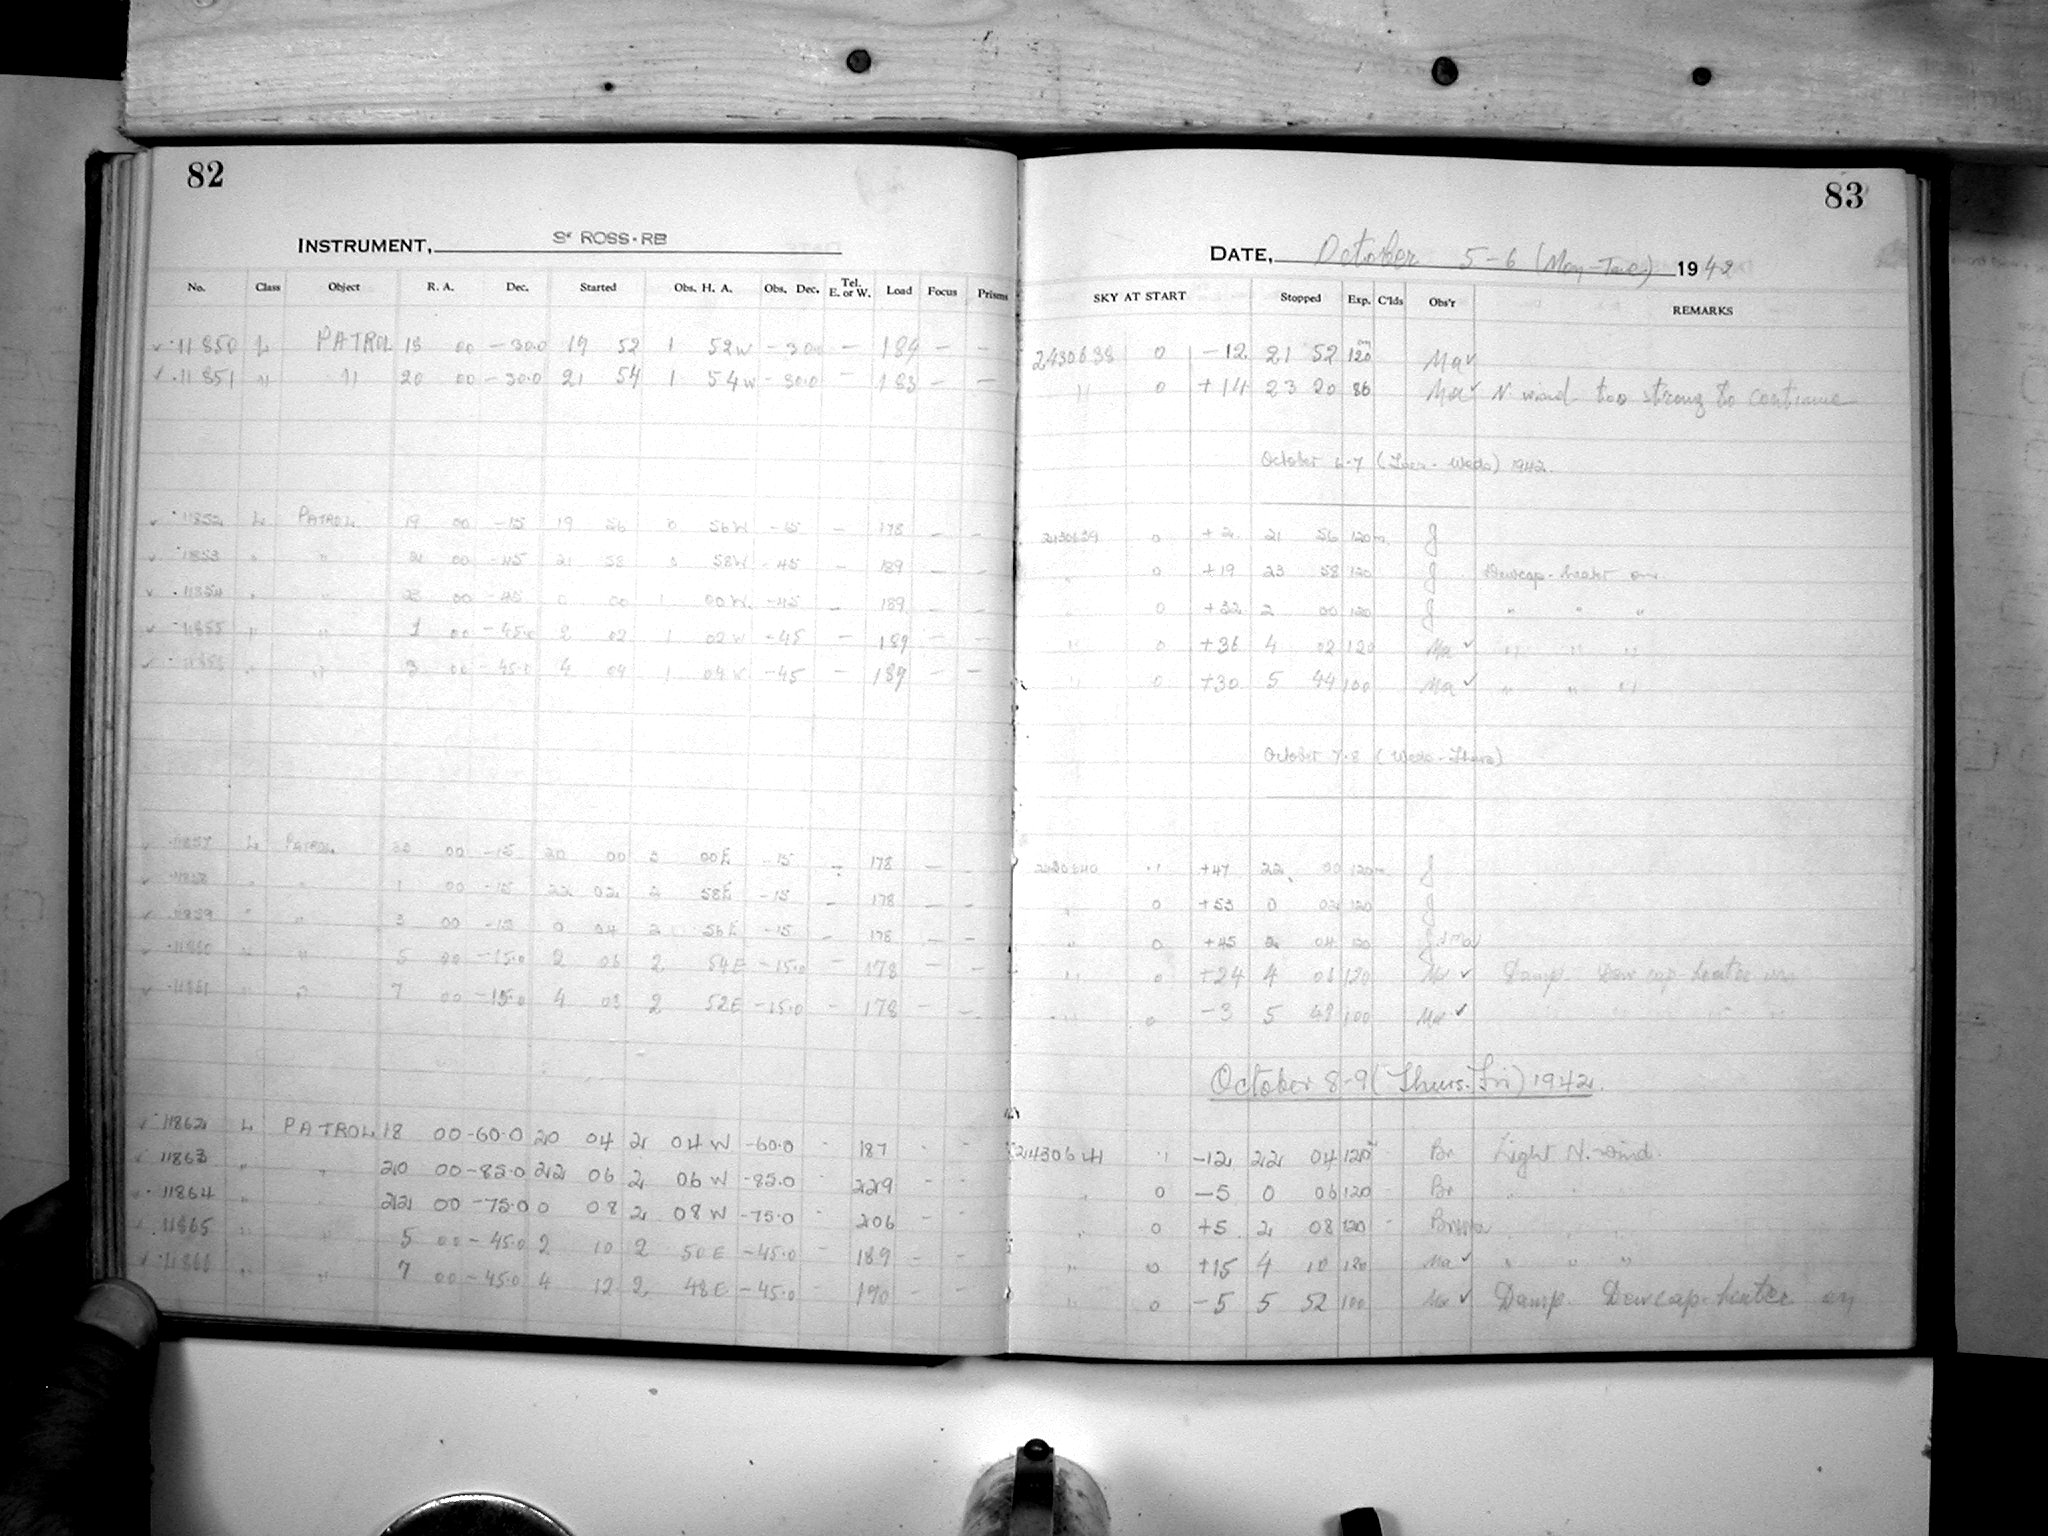 82
INSTRUMENT, 3" ROSS-RB
No. Class Object R. A. Dec. Started Obs. H. A. Obs. Dec. Tel. E. or W. Load Focus Prisms
11850 L PATROL 18 00 -30.0 19 52 1 52W -30.0 — 184 — —
11851 " " 20 00 -30.0 21 54 1 54W -30.0 — 183 — —
11852 L PATROL 19 00 -15 19 56 0 56W -15 — 178 — —
11853 " " 21 00 -45 21 58 0 58W -45 — 189 — —
11854 " " 23 00 -45 0 00 1 00W -45 — 189 — —
11855 " " 1 00 -45.0 2 02 1 02W -45 — 189 — —
11856 " " 3 00 -45.0 4 04 1 04W -45 — 189 — —
11857 L PATROL 23 00 -15 20 00 3 00E -15 — 178 — —
11858 " " 1 00 -15 22 02 2 58E -15 — 178 — —
11859 " " 3 00 -15 0 04 2 56E -15 — 178 — —
11860 " " 5 00 -15.0 2 06 2 54E -15.0 — 178 — —
11861 " " 7 00 -15.0 4 08 2 52E -15.0 — 178 — —
11862 L PATROL 18 00 -60.0 20 04 2 04W -60.0 - 187 - -
11863 " " 20 00 -85.0 22 06 2 06W -85.0 - 229 - -
11864 " " 22 00 -75.0 0 08 2 08W -75.0 - 206 - -
11865 " " 5 00 -45.0 2 10 2 50E -45.0 - 189 - -
11866 " " 7 00 -45.0 4 12 2 48E -45.0 - 190 - -
83
DATE, October 5-6 (Mon-Tue) 1942
SKY AT START Stopped Exp. C'lds Obs'r REMARKS
2430638 0 -12 21 52 120m Ma ✓
" 0 +14 23 20 86 Ma ✓ N. wind too strong to continue
October 6-7 (Tues-Weds) 1942.
2430639 0 +2 21 56 120m J
" 0 +19 23 58 120 J Dewcap-heater on
" 0 +32 2 00 120 J " " "
" 0 +36 4 02 120 Ma ✓ " " "
" 0 +30 5 44 100 Ma ✓ " " "
October 7-8 (Weds-Thurs)
2430640 .1 +47 22 00 120m J
" 0 +53 0 02 120 J
" 0 +45 2 04 120 J+Ma
" 0 +24 4 06 120 Ma ✓ Damp. Dewcap heater on
" 0 -3 5 48 100 Ma ✓ " " " "
October 8-9 (Thurs-Fri) 1942.
2430641 .1 -12 22 04 120m - Br Light N. wind.
" 0 -5 0 06 120 Br " " "
" 0 +5 2 08 120 - Br+Ma " " "
" 0 +15 4 10 120 Ma ✓ " " "
" 0 -5 5 52 100 Ma ✓ Damp. Dewcap-heater on